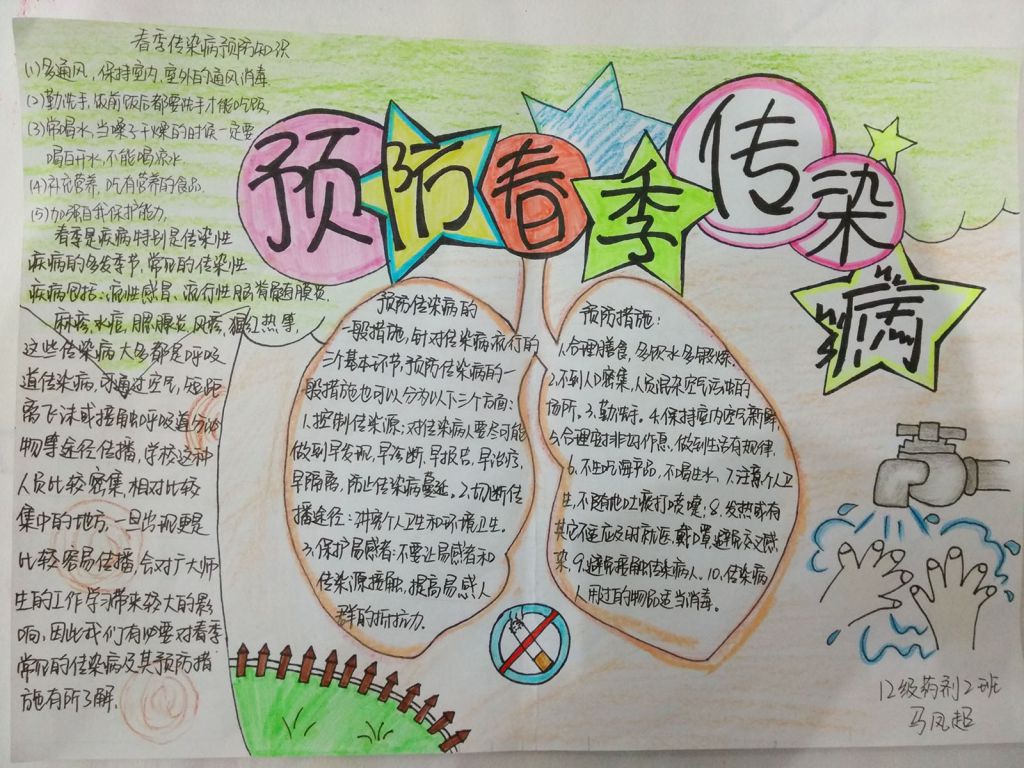 预防春季传染病
春季传染病预防知识
(1)多通风,保持室内,室外的通风消毒.
(2)勤洗手,饭前饭后都要洗手才能吃饭
(3)常喝水,当嗓子干燥的时候一定要
喝白开水,不能喝凉水.
(4)补充营养,吃有营养的食品.
(5)加强自我保护能力.
春季是疾病特别是传染性
疾病的多发季节,常见的传染性
疾病包括:流性感冒、流行性脑脊髓膜炎.
麻疹,水痘,腮腺炎,风疹,猩红热等,
这些传染病大多都是呼吸
道传染病,可通过空气,短距
离飞沫或接触呼吸道分泌
物等途径传播,学校这种
人员比较密集,相对比较
集中的地方,一旦出现更是
比较容易传播,会对广大师
生的工作学习带来较大的影
响,因此我们有必要对春季
常见的传染病及其预防措
施有所了解.
预防传染病的
一般措施,针对传染病流行的
三个基本环节,预防传染病的一
般措施也可以分为以下三个方面:
1.控制传染源:对传染病人要尽可能
做到早发现,早诊断,早报告,早治疗,
早隔离,防止传染病蔓延.2.切断传
播途径:讲究个人卫生和环境卫生.
3.保护易感者:不要让易感者和
传染源接触,提高易感人
群的抵抗力.
预防措施:
1.合理膳食,多饮水多锻炼.
2.不到人口密集,人员混杂空气污染的
场所.3.勤洗手.4.保持室内空气新鲜
5.合理安排好作息,做到生活有规律.
6.不生吃海产品,不喝生水.7.注意个人卫
生,不随地吐痰打喷嚏;8.发热或有
其它不适应及时就医,戴口罩,避免交叉感
染.9.避免接触传染病人.10.传染病
人用过的物品适当消毒.
12级药剂2班
马凤超